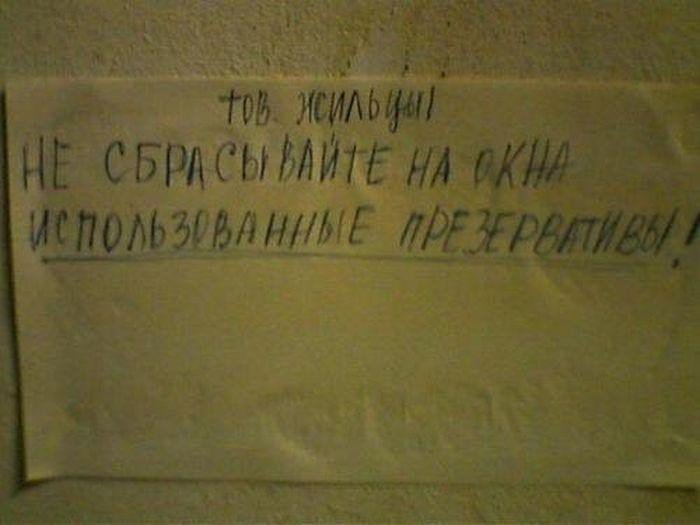 тов. жильцы
НЕ СБРАСЫВАЙТЕ НА ОКНА
ИСПОЛЬЗОВАННЫЕ ПРЕЗЕРВАТИВЫ!